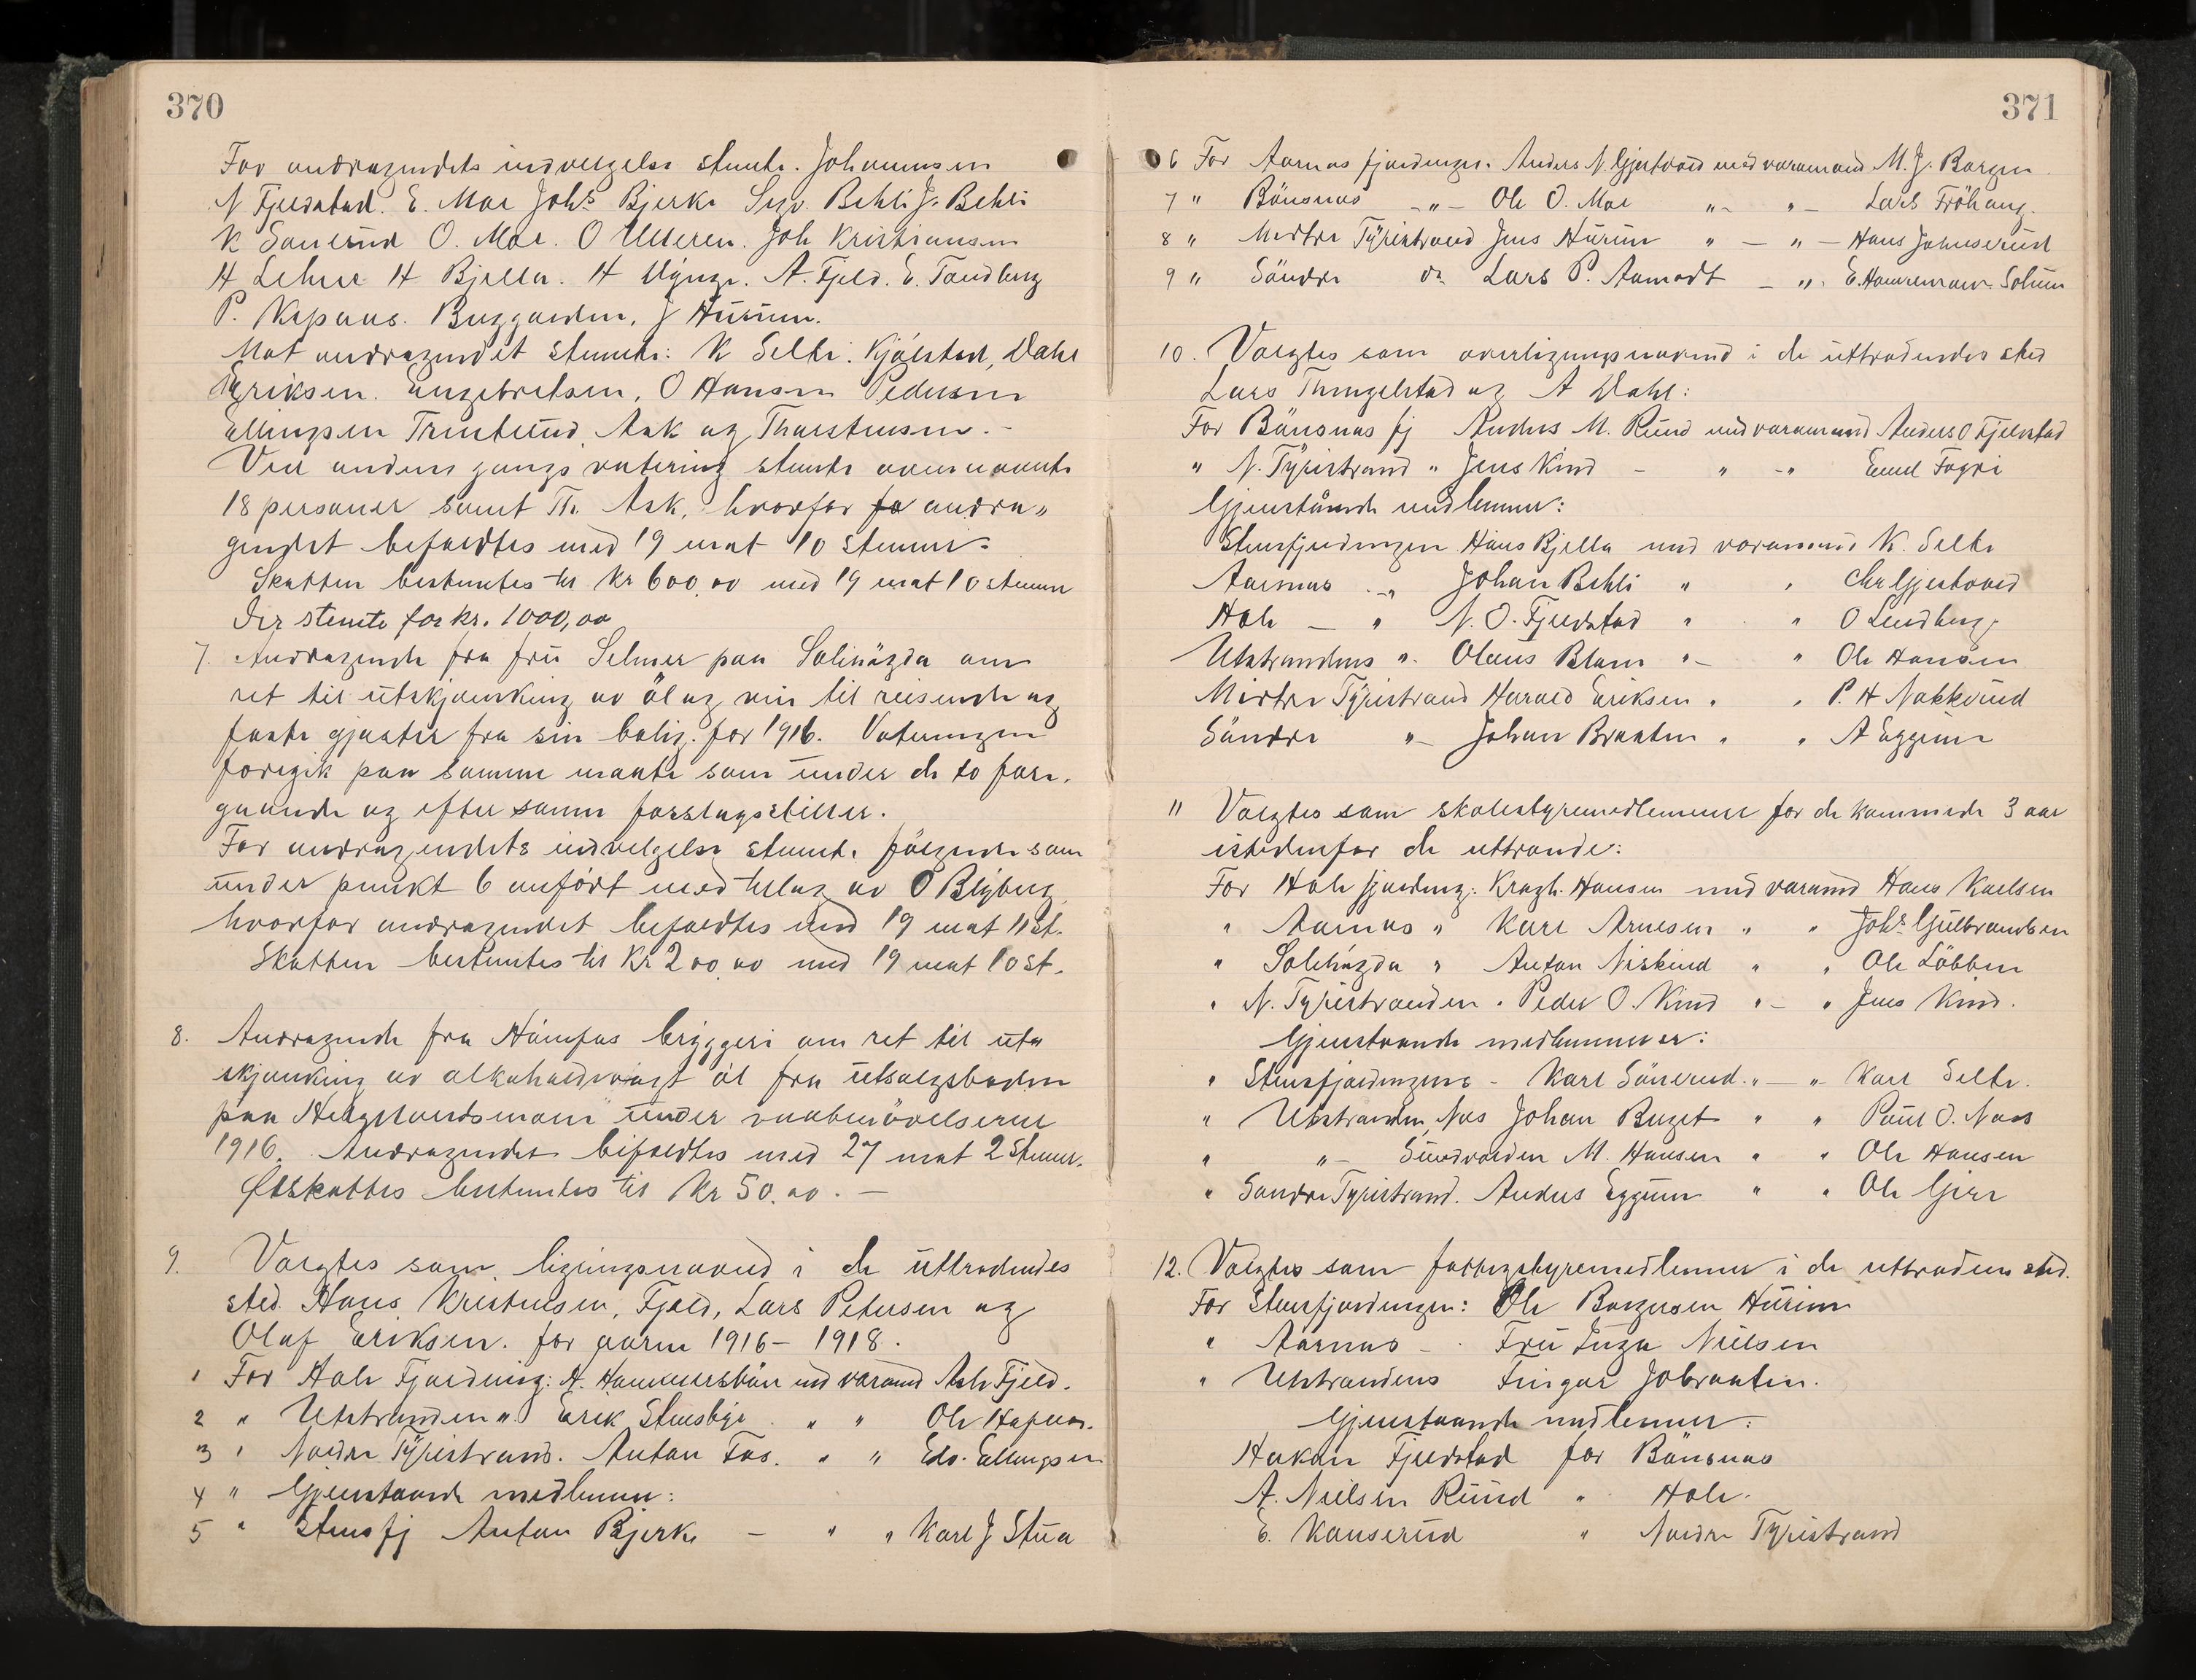 370
For andragendets indvelgelse stemte. Johannesen
N Fjeldstad. E. Moe Johs Bjerke Sigv. Behli J. Behli
K Sønerud O. Moe. O Ulleren. Joh Kristiansen
H Lehne H Bjella. H Uynge. A. Fjeld. E. Tandberg
P. Bureggarden, J Hurum.
Mot andragendet stemte: K Selte. Kjølstad, Dahl
Eriksen. Engebretsen, O Hansen Pedersen
Ellingsen Trinterud, Ask og Thorstensen. –
Ved anden gangs votering stemte ovennævnte
18 personer samt Th. Ask, hvorfor andra„
gendet bifaldtes med 19 mot 10 stemmer.
Skatten bestemtes til kr 600,00 med 19 mot 10 stemmer
Der stemte for kr. 1000,00
7. Andragende fra fru Selmer paa Solihøgda om
ret til utskjænking av øl og vin til reisende og
faste gjæster fra sin bolig for 1916. Voteringen
foregik paa samme maate som under de to fore-
gaaende og efter samme forslagsstiller.
For andragendets indvelgelse stemte følgende som
under punkt 6 anført med tillæg av O Blyberg,
hvorfor andragendet bifaldtes med 19 mot 11 st.
Skatten bestemtes til Kr 200,00 med 19 mot 10 st.
8. Andragende fra Hønefos bryggeri om ret til ut„
skjænking av alkoholsvagt øl fra utsalgsboden
paa Helgelandsmoen under vaabenøvelserne
1916. Andragendet bifaldtes med 27 mot 2 stemmer.
Ølskattes bestemtes til Kr 50.00. –
9. Valgtes som ligningsnævnd i de uttrædendes
sted. Hans Kristensen, Fjeld, Lars Petersen og
Olaf Eriksen. for aarene 1916 – 1918.
1 For Hole Fjærding: A. Hamnersbøn med varamd Asle Fjeld.
2 " Utstranden ". Erik Stensbye. " " Ole
3 " Nordre Tyristrand. Anton Fos. " " Edv. Ellingsen
4 " Gjenstaaende medlemmer:
5 " Stensfj Anton Bjerke – " " Karl J Stua
371
6 For Aasnæs fjærdingen. Anders N. Gjestvold med varamand M. J. Borgen
7 " Bønsnæs – " – Ole O. Moe " – " – Lars Frøhaug.
8 " Mertre Tyristrand Jens Hurum " – " – Hans Johnserud
9 " Søndre do Lars P. Aamodt – " . E. Solum
10. Valgtes som overligningsnævnd i de uttrædendes sted
Lars Thingelstad og A Dahl:
For Bønsnæs fj Anders M. Rund med varamand Anders O Fjeldstad
" N. Tyristrand " Jens Kind – " – " Emil Fagri
Gjenstående medlemmer:
Stensfjerdingen Hans Bjella med varamand K. Selte
Aasnæs – " Johan Behli " " Chr Gjestvold
Hole – " N. O. Fjeldstad " " O Lundberg
Utstrandens " Olaus Blom " – " Ole Hansen
Mertre Tyristrand Harald Eriksen " " P. H Nakkerud
Søndre " – Johan Braaten " " A Eggium
11 Valgtes som skolestyremedlemmer for de kommende 3 aar
istedenfor de uttraadte:
For Hole fjærding: Kragh. Hansen med varamd Hans Karlsen
" Aasnæs " Karl Arnesen " " Johs Gulbrandsen
" Solihøgda " Anton Niskind " " Ole Løbben
" N. Tyristranden " Peder O. Kind " – " Jens Kind.
Gjenstaaende medlemmer:
" Stensfjærdingens – Karl Sønerud. " – " Karl Selte.
" Utstranden, Næs Johan Burgt " " Paul O. Næs
" " – Sundvolden M. Hansen " " Ole Hansen
" Søndre Tyristrand. Anders Eggium " " Ole Gjer
12. Valgtes som fattigstyremedlemmer i de uttrædenes sted.
For Stensfjærdingen: Ole Borgersen Hurum
" Aasnæs – Fru Inga Nielsen
" Utstrandens Fingar Jobraaten.
Gjenstaaende medlemmer:
Hakon Fjeldstad for Bønsnæs
A. Nielsen Rund " Hole.
E. Kanserud " Nordre Tyristrand